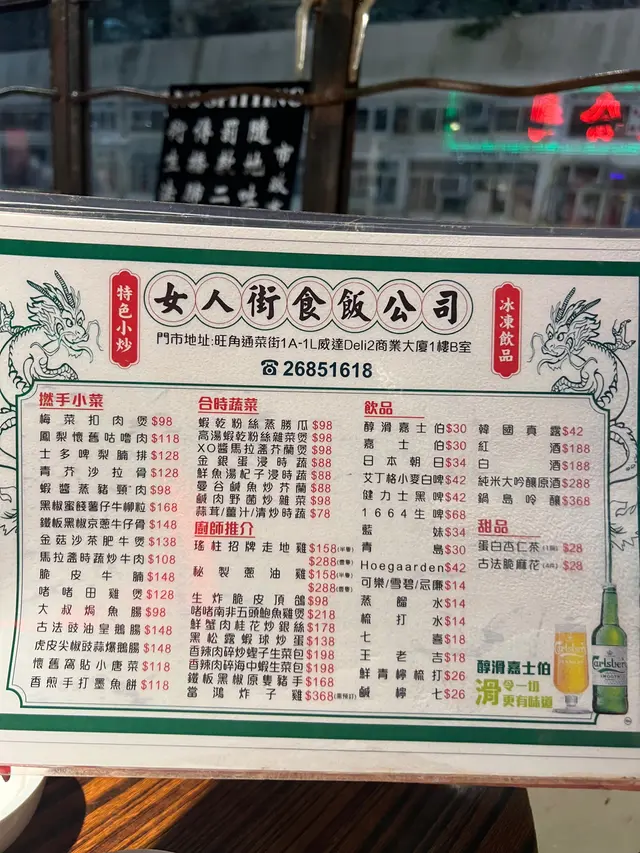 NO SPITTING
隨地吐
市政
特色小炒
女人街食飯公司
冰凍飲品
門市地址:旺角通菜街1A-1L威達Deli2商業大廈1樓B室
☎ 26851618
撚手小菜
梅菜扣肉煲$98
鳳梨懷舊咕嚕肉$118
士多啤梨腩排$128
青芥沙拉骨$128
蝦醬蒸豬頸肉$98
黑椒蜜餞薯仔牛柳粒$168
鐵板黑椒京蔥牛仔骨$148
金菇沙茶肥牛煲$138
馬拉盞時蔬炒牛肉$108
脆皮牛腩$148
啫啫田雞煲$128
大叔焗魚腸$98
古法豉油皇鵝腸$148
虎皮尖椒豉蒜爆鵝腸$148
懷舊窩貼小唐菜$118
香煎手打墨魚餅$118
合時蔬菜
蝦乾粉絲蒸勝瓜$98
高湯蝦乾粉絲雜菜煲$98
XO醬馬拉盞芥蘭煲$98
金銀蛋浸時蔬$88
鮮魚湯杞子浸時蔬$88
曼谷鹹魚炒芥蘭$88
鹹肉野菌炒雜菜$98
蒜茸/薑汁/清炒時蔬$78
廚師推介
瑤柱招牌走地雞$158(半隻)
$288(壹隻)
秘製蔥油雞$158(半隻)
$288(壹隻)
生炸脆皮頂鴿$98
啫啫南非五頭鮑魚雞煲$218
鮮蟹肉桂花炒銀絲$178
黑松露蝦球炒蛋$138
香辣肉碎炒蟶子生菜包$198
香辣肉碎海中蝦生菜包$198
鐵板黑椒原隻豬手$168
當鴻炸子雞$368(需預訂)
飲品
醇滑嘉士伯$30
嘉士伯$30
日本朝日$34
艾丁格小麥白啤$42
健力士黑啤$42
1664生啤$68
藍妹$34
青島$30
Hoegaarden$42
可樂/雪碧/忌廉$14
蒸餾水$14
梳打水$14
七喜$18
王老吉$18
鮮青檸梳打$26
鹹檸七$26
韓國真露$42
紅酒$188
白酒$188
純米大吟釀原酒$288
鍋島吟釀$368
甜品
蛋白杏仁茶 $28
古法脆麻花 $28
醇滑嘉士伯
滑令一切更有味道
Carlsberg
Carlsberg